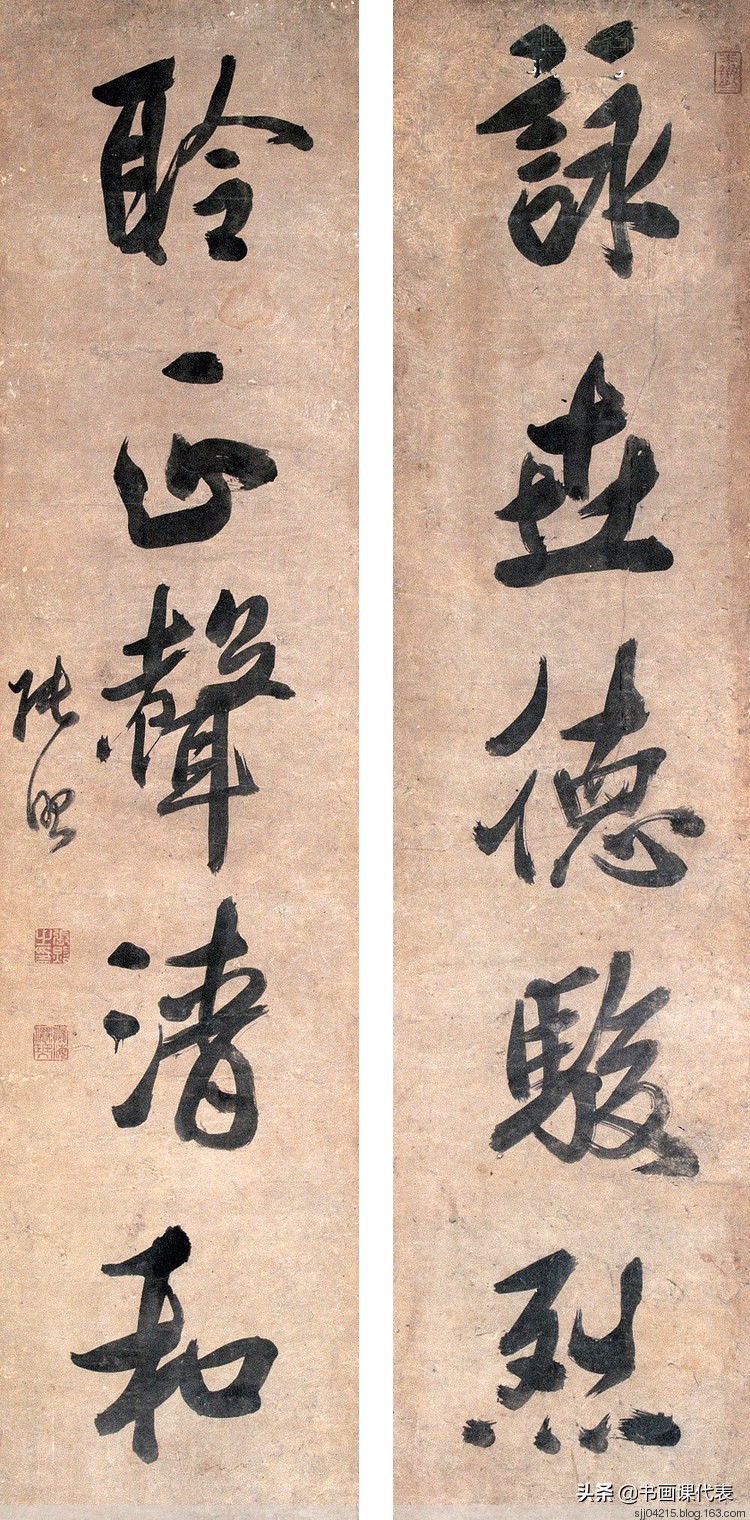 詠世德駿烈
聆正聲清和
張照
張照之印
头条 @书画课代表
sjj04215.blog.163.com